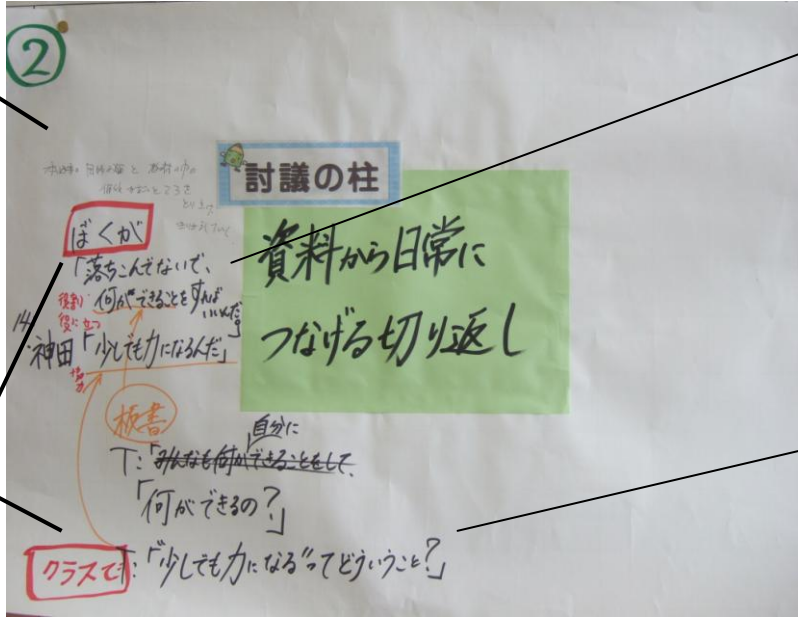 ②
討議の柱
資料から日常に
つなげる切り返し
ぼくが
「落ちこんでないで、
何かできることをすれば
いいんだ」
役割
役に立つ
14.
神田「少しでも力になるんだ」
協力
板書
自分に
T:「みんなも何かできることをして
「何ができるの?」
クラスで
T:「"少しでも力になる"ってどういうこと?」